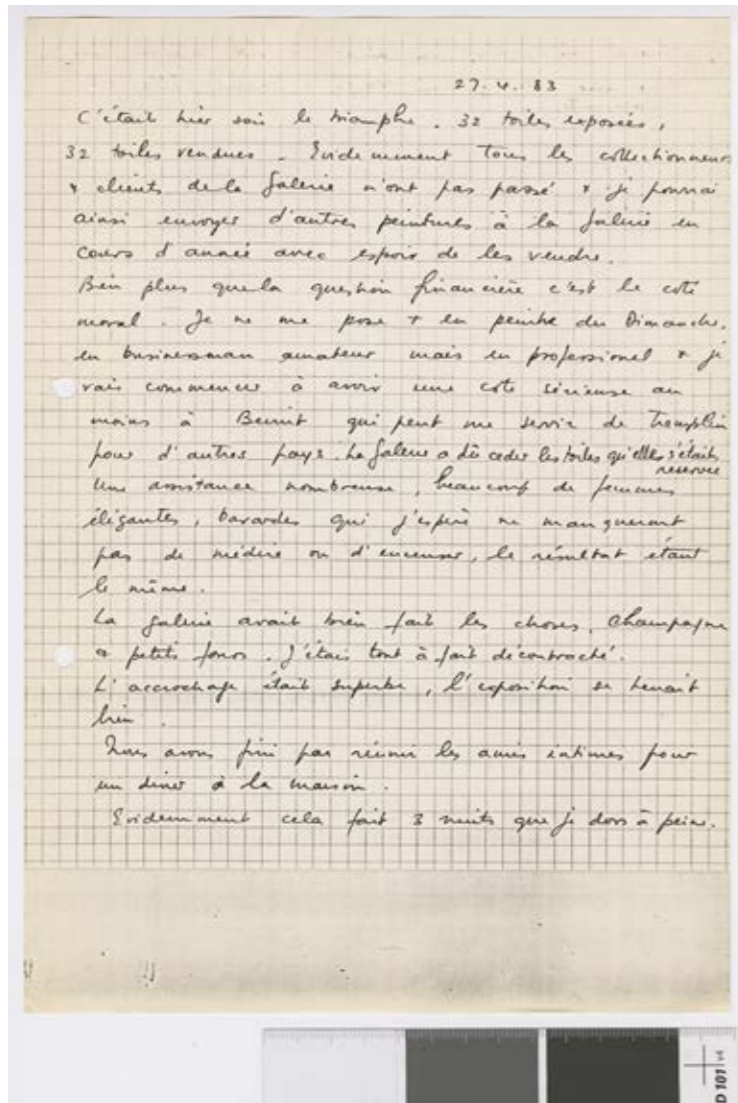 27.4.83
C'était hier soir le triomphe. 32 toiles exposées,
32 toiles vendues. Evidemement tous les collectionneurs
& clients de la Galerie n'ont pas passé & je pourrai
ainsi envoyer d'autres peintures à la Galerie en
cours d'année avec espoir de les vendre.
Bien plus que la question financière c'est le coté
moral. Je ne me pose + en peintre du Dimanche,
en businessman amateur mais en professionel & je
vais commencer à avoir une cote sérieuse au
moins à Beirut qui peut me servir de tremplin
pour d'autres pays. La Galerie a dû ceder les toiles qu'elle s'était
reservée
Une assistance nombreuse, beaucoup de femmes
élégantes, bavardes qui j'espère ne manqueront
pas de médire ou d'encenser, le résultat étant
le même.
La galerie avait bien fait les choses, champagne
& petits fours. J'étais tout à fait décontracté.
L'accrochage était superbe, l'exposition se tenait
bien.
Nous avons fini par réunir les amis intimes pour
un diner à la maison.
Evidemment cela fait 3 nuits que je dors à peine.
D 101 v4